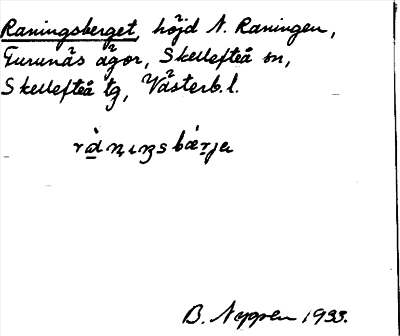 Raningsberget, höjd N. Raningen,
Gurunäs ägor, Skellefteå sn,
Skellefteå tg, Västerb. l.
B. Nygren 1933.